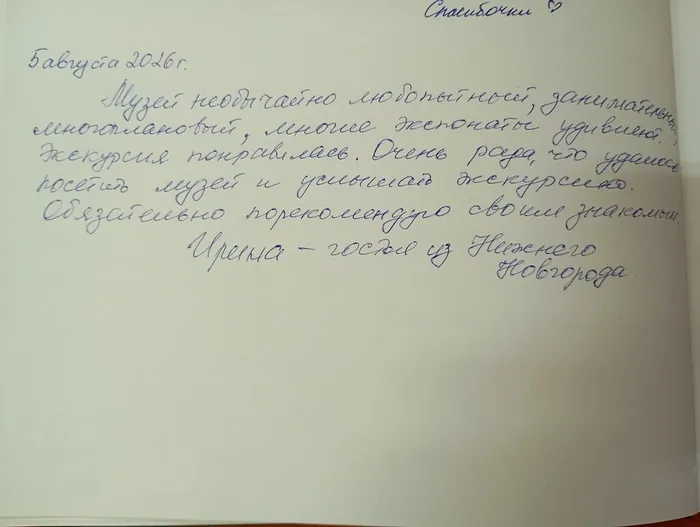 Спасибочки ♡
5 августа 2026 г.
Музей необычайно любопытный, занимательный,
многоплановый, многие экспонаты удивляют.
Экскурсия понравилась. Очень рада, что удалось
посетить музей и услышать экскурсию.
Обязательно порекомендую своим знакомым.
Ирина – гостья из Нижнего
Новгорода